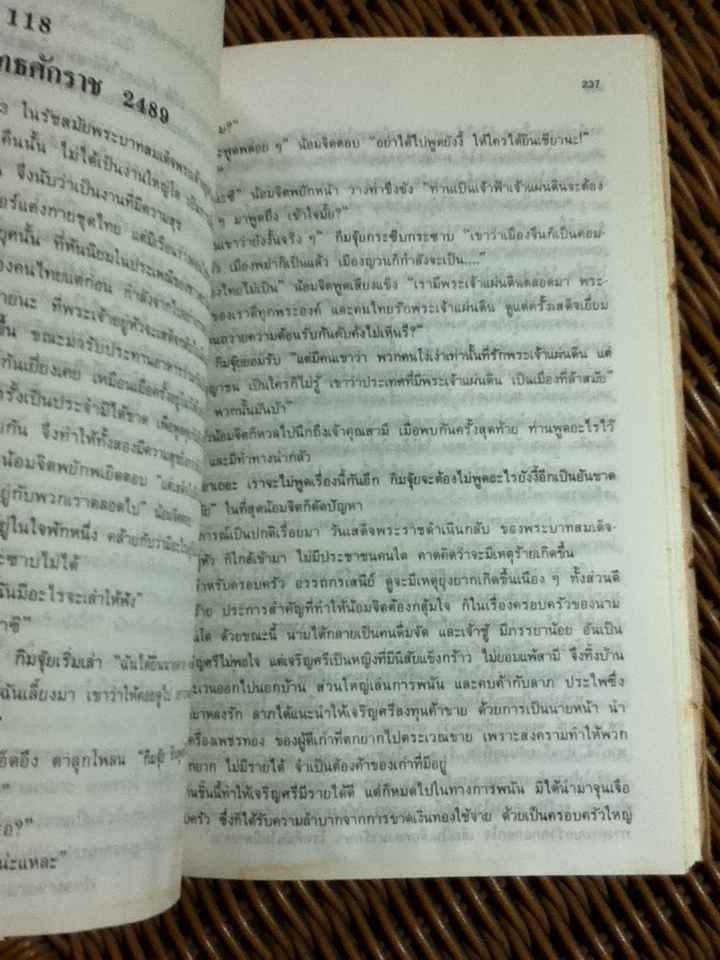 118
ทธศักราช 2489
3 ในรัชสมัยพระบาทสมเด็จพระเจ้า
คืนนั้น ไม่ได้เป็นงานใหญ่โต
จึงนับว่าเป็นงานที่มีความสุข
อร์แต่งกายชุดไทย
ยุคนั้น ที่หันนิยมในประเพณี
องคนไทยแต่ก่อน กำลังจาก
ายนะ ที่พระเจ้าอยู่หัวจะเสด็จ
ขึ้น ขณะมารับประทานอาหาร
กันเยี่ยงเคย เหมือนเมื่อครั้ง
ครั้งเป็นประจำมิได้ขาด เพื่อพูด
ยกัน จึงทำให้ทั้งสองมีความสุข
น้อมจิตพยักพเยิดตอบ
ยู่กับพวกเราตลอดไป"
ยู่ในใจพักหนึ่ง คล้ายกับว่ามีอะไร
ะซาบไม่ได้
ฉันมีอะไรจะเล่าให้ฟัง"
าซิ"
กิมจุ้ยเริ่มเล่า "ฉันได้ยิน
ฉันเลี้ยงมา เขาว่าให้คอยดูไป
อึดอึง ตาลุกโพลน "กิมจุ้ย
"
อ?"
น่ะแหละ"
237
ม?"
ะพูดพล่อย ๆ" น้อมจิตตอบ "อย่าได้ไปพูดยังงี้ ให้ใครได้ยินเชียวนะ!"
"
น่ะซี" น้อมจิตพยักหน้า วางท่าขึงขัง "ท่านเป็นเจ้าฟ้าเจ้าแผ่นดินจะต้อง
ๆ มาพูดถึง เข้าใจมั้ย?"
นเขาว่ายังงั้นจริง ๆ" กิมจุ้ยกระซิบกระซาบ "เขาว่าเมืองจีนก็เป็นคอม-
ว เมืองพม่าก็เป็นแล้ว เมืองญวนก็กำลังจะเป็น...."
องไทยไม่เป็น" น้อมจิตพูดเสียงแข็ง "เรามีพระเจ้าแผ่นดินตลอดมา พระ-
ของเราดีทุกพระองค์ และคนไทยรักพระเจ้าแผ่นดิน ดูแต่ครั้งเสด็จเยี่ยม
นถวายความต้อนรับกันคับคั่งไม่เห็นรึ?"
กิมจุ้ยยอมรับ "แต่มีคนเขาว่า พวกคนโง่เง่าเท่านั้นที่รักพระเจ้าแผ่นดิน แต่
ญาชน เป็นใครก็ไม่รู้ เขาว่าประเทศที่มีพระเจ้าแผ่นดิน เป็นเมืองที่ล้าสมัย"
พวกนั้นมันบ้า"
น้อมจิตก็หวลไปนึกถึงเจ้าคุณสามี เมื่อพบกันครั้งสุดท้าย ท่านพูดอะไรไว้
และมีท่าทางน่ากลัว
อาเถอะ เราจะไม่พูดเรื่องนี้กันอีก กิมจุ้ยจะต้องไม่พูดอะไรยังงี้อีกเป็นอันขาด
ย" ในที่สุดน้อมจิตก็ตัดปัญหา
การณ์เป็นปกติเรื่อยมา วันเสด็จพระราชดำเนินกลับ ของพระบาทสมเด็จ-
ยู่หัว ก็ใกล้เข้ามา ไม่มีประชาชนคนใด คาดคิดว่าจะมีเหตุร้ายเกิดขึ้น
สำหรับครอบครัว อรรถกรเสนีย์ ดูจะมีเหตุยุ่งยากเกิดขึ้นเนือง ๆ ทั้งส่วนดี
ร้าย ประการสำคัญที่ทำให้น้อมจิตต้องกลุ้มใจ ก็ในเรื่องครอบครัวของนาม
นโต ด้วยขณะนี้ นามได้กลายเป็นคนดื่มจัด และเจ้าชู้ มีภรรยาน้อย อันเป็น
ญศรีไม่พอใจ แต่เจริญศรีเป็นหญิงที่มีนิสัยแข็งกร้าว ไม่ยอมแพ้สามี จึงทิ้งบ้าน
ะเวนออกไปนอกบ้าน ส่วนใหญ่เล่นการพนัน และคบค้ากับลาภ ประไพซึ่ง
ยาหลงรัก ลาภได้แนะนำให้เจริญศรีลงทุนค้าขาย ด้วยการเป็นนายหน้า นำ
ครื่องเพชรทอง ของผู้ดีเก่าที่ตกยากไปตระเวณขาย เพราะสงครามทำให้พวก
กยาก ไม่มีรายได้ จำเป็นต้องค้าของเก่าที่มีอยู่
านชิ้นนี้ทำให้เจริญศรีมีรายได้ดี แต่ก็หมดไปในทางการพนัน มิได้นำมาจุนเจือ
บครัว ซึ่งก็ได้รับความลำบากจากการขาดเงินทองใช้จ่าย ด้วยเป็นครอบครัวใหญ่